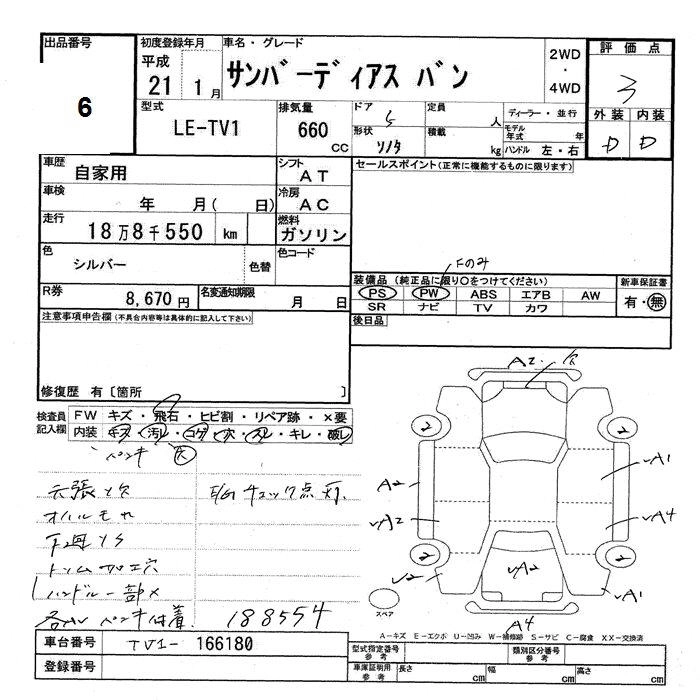 出品番号 初度登録年月 車名・グレード 2WD ・ 4WD 評価点
6 平成 21 1月 サンバーディアス バン 3
型式 排気量 ドア 5 定員 人 ディーラー・並行 外装 内装
LE-TV1 660 CC 形状 積載 kg モデル年式 年 ハンドル 左・右 D D
車歴 自家用 シフト AT セールスポイント(正常に機能するものに限ります)
車検 年 月( 日) 冷房 AC
走行 18万8千550 km 燃料 ガソリン
色 シルバー 色替 色コード Fのみ
装備品 (純正品に限り○をつけてください) 新車保証書
R券 8,670円 名変通知期限 月 日 PS PW ABS エアB AW 有・無
SR ナビ TV カワ
注意事項申告欄 (不具合内容等は具体的に記入して下さい) 後日品
A2 欠
修復歴 有〔箇所 〕
検査員記入欄 FW キズ・飛石・ヒビ割・リペア跡・×要
内装 キズ・汚レ・コゲ・穴・スレ・キレ・破レ
ペンキ 大
2 2
A2 A1
天張ヨ欠 E/Gチェック点灯
A2 A4
下廻ヨゴ
2 2
トリム加工穴
ハンドル一部×
A2
2 A1
ペンキ付着 188554
スペア
A4
A-キズ E-エクボ U-凹み W-補修跡 S-サビ C-腐食 XX-交換済
車台番号 TV1- 166180 型式指定番号 参考 類別区分番号 参考
登録番号 車庫証明用 参考 長さ cm 幅 cm 高さ cm